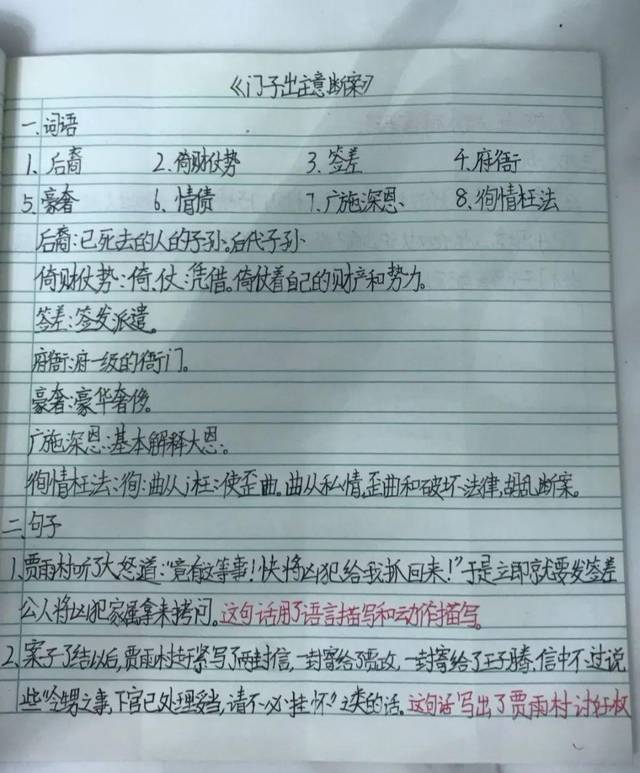 《门子出主意断案》
一、词语
1、后裔 2、倚财仗势 3、签差 4、府衙
5、豪奢 6、情债 7、广施深恩、 8、徇情枉法
后裔:已死去的人的子孙;后代子孙.
倚财仗势:倚、仗:凭借。倚仗着自己的财产和势力。
签差:签发派遣。
府衙:府一级的衙门。
豪奢:豪华奢侈。
广施深恩:基本解释大恩。
徇情枉法:徇:曲从;枉:使歪曲。曲从私情,歪曲和破坏法律,胡乱断案。
二、句子
1、贾雨村听了大怒道:“竟有这等事!快将凶犯给我抓回来!”于是立即就要发签差
公人将凶犯家属拿来拷问。这句话用了语言描写和动作描写。
2、案子了结以后,贾雨村赶紧写了两封信,一封寄给了贾政,一封寄给了王子腾,信中不过说
些“令甥之事,下官已处理妥当,请不必挂怀”之类的话。这句话写出了贾雨村讨好权